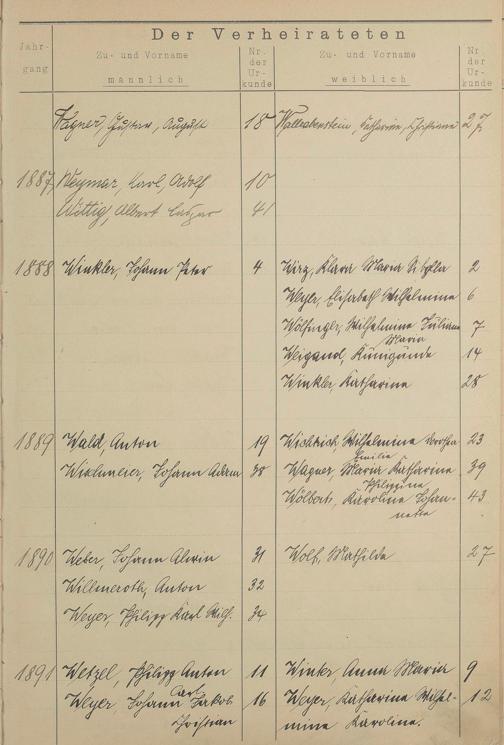 Der Verheirateten
Jahr-
gang
Zu- und Vorname
männlich
Nr.
der
Ur-
kunde
Zu- und Vorname
weiblich
Nr.
der
Ur-
kunde
Wagner, Gustav, August 18 Wallrabenstein, Katharine, Christiane 27
1887 Weymar, Karl, Adolf 10
Wittig, Albert 41
1888 Winkler, Johann Peter 4 Wirz, Klara Maria Sibylla 2
Weyer, Elisabeth Wilhelmine 6
Wölfinger, Wilhelmine Juliane 7
Maria
Weigand, Kunigunde 14
Winkler, Katharina 28
1889 Wald, Anton 19 Wilhelmine Dorothea 23
Emilie
Johann Adam 38 Wagner, Maria Katharina 39
Philippine
Wölbert, Karoline Johan- 43
netta
1890 Weber, Johann Alwin 31 Wolf, Mathilde 27
Willmeroth, Anton 32
Weyer, Philipp Karl Wilh. 34
1891 Wetzel, Philipp Anton 11 Winter Anna Maria 9
Carl
Weyer, Johann Jakob 16 Weyer, Katharina Wilhel- 12
Christian mine Karoline.